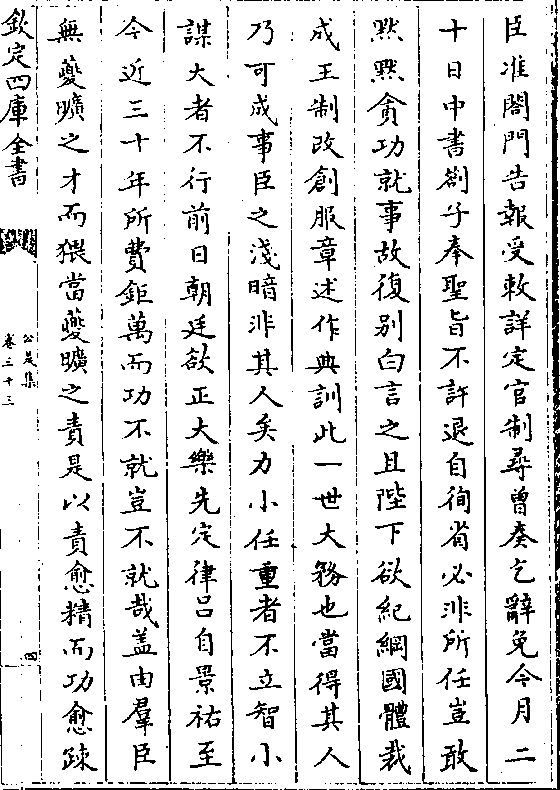 臣准閤門告報受敕詳定官制尋曾奏乞辭免今月二
十日中書劄子奉聖旨不許退自徇省必非所任豈敢
黙黙貪功就事故復别白言之且陛下欲紀綱國體裁
成王制改創服章述作典訓此一世大務也當得其人
乃可成事臣之淺暗非其人矣力小任重者不立智小
謀大者不行前日朝廷欲正大樂先定律吕自景祐至
今近三十年所費鉅萬而功不就豈不就哉盖由羣臣
無夔曠之才而猥當夔曠之責是以責愈精而功愈踈
欽定四庫全書
公是集
卷三十三
四